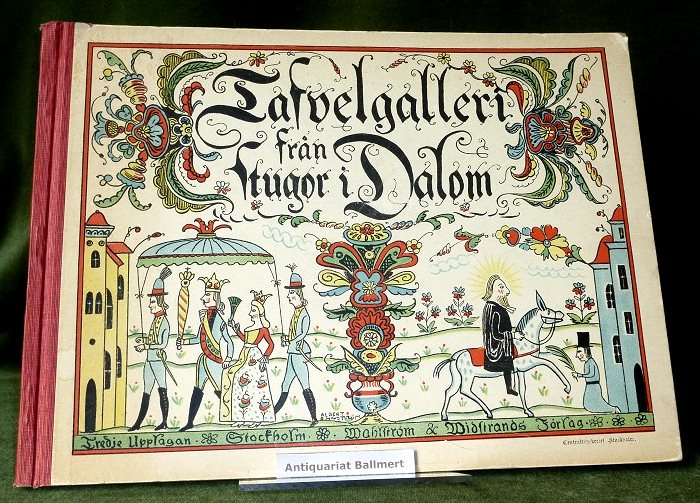 Tafvelgalleri
från
Stugor i Dalom
ALBERT
ENGSTRÖM
Tredje Upplagan. Stockholm. Wahlström & Widstrands Förlag.
Centraltryckeriet Stockholm.
Antiquariat Ballmert